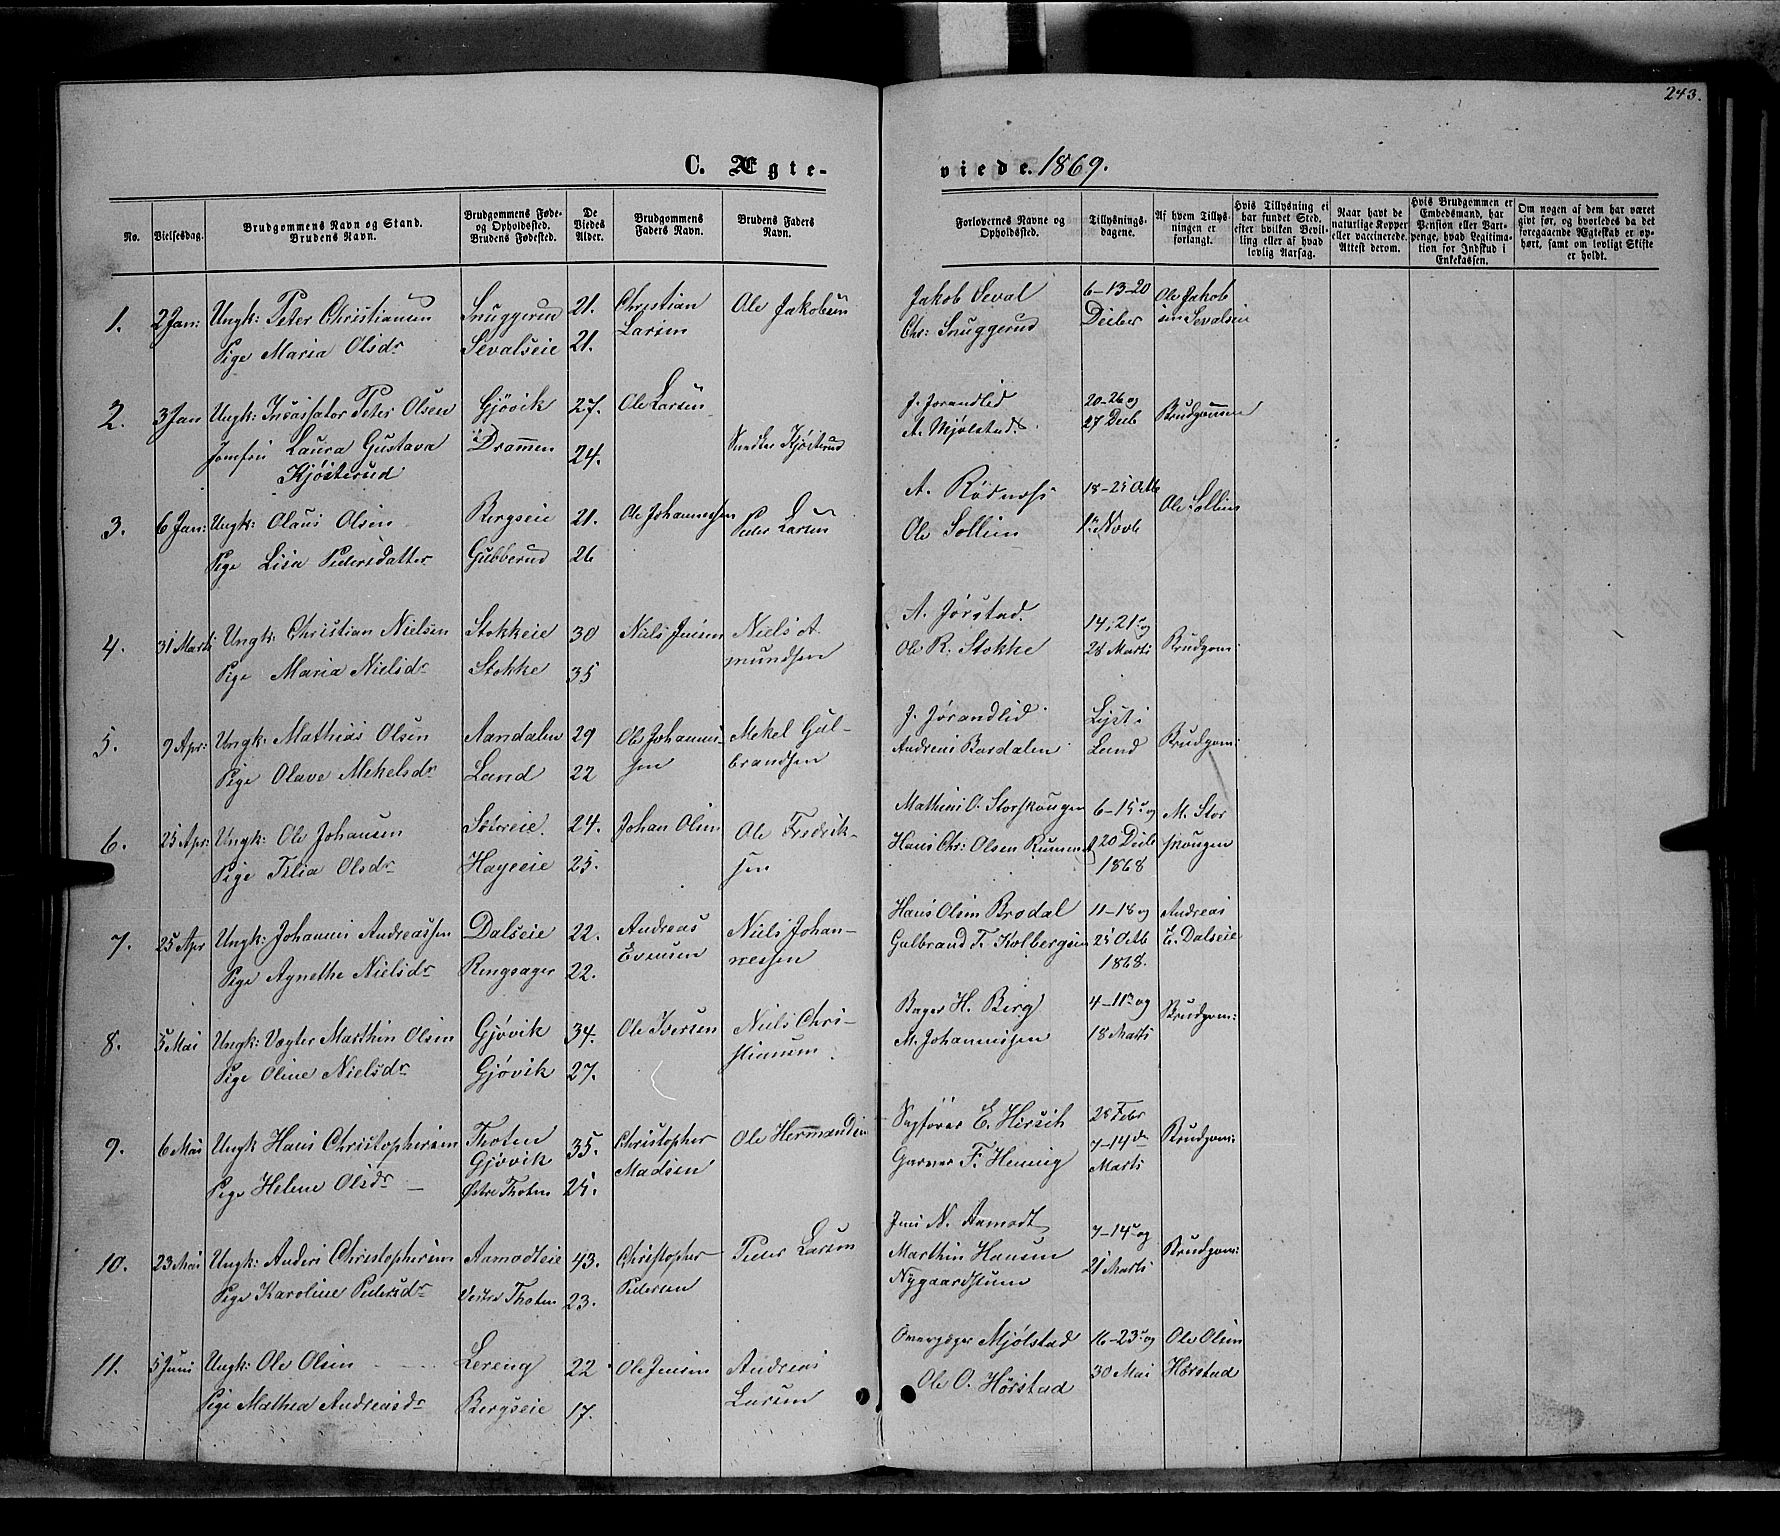 243.
C. Ægte-
viede. 1869.
No.
Vielsesdag.
Brudgommens Navn og Stand.
Brudens Navn.
Brudgommens Føde-
og Opholdssted.
Brudens Fødested.
De
Viedes
Alder.
Brudgommens
Faders Navn.
Brudens Faders
Navn.
Forlovernes Navne og
Opholdssted.
Tillysnings-
dagene.
Af hvem Tillys-
ningen er
forlangt.
Hvis Tillysning ei
har fundet Sted,
efter hvilken Bevil-
ling eller af hvad
lovlig Aarsag.
Naar havt de
naturlige Kopper
eller vaccinerede.
Attest derom.
Hvis Brudgommen er
Embedsmand, har
Pension eller Vart-
penge, hvad Legitima-
tion for Indskud i
Enkekassen.
Om nogen af dem har været
gift før, og hvorledes da det
foregaaende Ægteskab er op-
hørt, samt om lovligt Skifte
er holdt.
1. 2 Jan: Ungk: Peter Christiansen Snuggerud 21. Christian Ole Jakobsen Jakob Seval 6-13-20 Ole Jakob
Pige Maria Olsdr Sevalseie 21. Larsen Chr: Snuggerud Decbr sen Sevalseie
2. 3 Jan Ungk: Incassator Peter Olsen Gjøvik 27. Ole Larsen J. Jørandlid 20-26 og Brudgommen
Jomfru Laura Gustava Drammen 24. Kjøsterud A. Mjølstad. 27 Decb
Kjøsterud
3. 6 Jan: Ungk: Olaus Olsen Bergseie 21. Ole Johannessen Peder Larsen A. Rødnæs 18-25 Octb Ole Sollien
Pige Lisa Pedersdatter Gubberud 26 Ole Sollien 1n Novb
4. 31 Marts Ungk: Christian Nielsen Stokkeie 30 Niels Jensen Niels A- A. Jørstad. 14, 21 og Brudgom:
Pige Maria Nielsdr Stokke 35 mundsen Ole R. Stokke 28 Marts
5. 9 Apr: Ungk: Mathias Olsen Aandalen 29 Ole Johannes- Mekel Gul- J. Jørandlid Lyst i Brudgom:
Pige Olave Mekelsdr Land 22 sen brandsen Andreas Bardalen Land
6. 25 Apr: Ungk: Ole Johansen 24. Johan Olsen Ole Fredrik- Mathias O. Storskougen 6-15 og M. Stor
Pige Olsdr Hageeie 25. sen Hans Chr: Olsen 20 Decb skougen
1868
7. 25 Apr Ungk: Johannes Andreassen Dalseie 22. Andreas Niels Johan- Hans Olsen Brodal 11-18 og Andreas
Pige Agnethe Nielsdr Ringsager 22. Evensen nessen Gulbrand F. Kolbergseie 25 Octb E. Dalseie
1868.
8. 5 Mai Ungk: Vægter Marthin Olsen Gjøvik 34. Ole Iversen Niels Chri- Bager H. Berg 4-11 og Brudgom:
Pige Oline Nielsdr Gjøvik 27. stiansen M. Johannessen 18 Marts
9. 6 Mai Ungk Hans Christophersen Thoten 35. Christopher Ole Hermandsen Sagfører E. Hirsch 28 Febr Brudgom:
Gjøvik Madsen 7-14de
Pige Helene Olsdr Østre Thoten 25. Garver F. Hennig Marts
10. 23 Mai Ungk: Anders Christophersen Aamodteie 43. Christopher Peder Larsen Jens N. Aamodt 7-14 og Brudgom:
Pige Karoline Pedersdr Vestre Thoten 23. Pedersen Marthin Hansen 21 Marts
Nygaardstuen
11. 5 Juni Ungk: Ole Olsen Lereng 22 Ole Jensen Andreas Overjæger Mjølstad 16-23 og Ole Olsen
Pige Mathea Andreasdr Bergseie 17. Larsen Ole O. Hørstad 30 Mai Hørstad